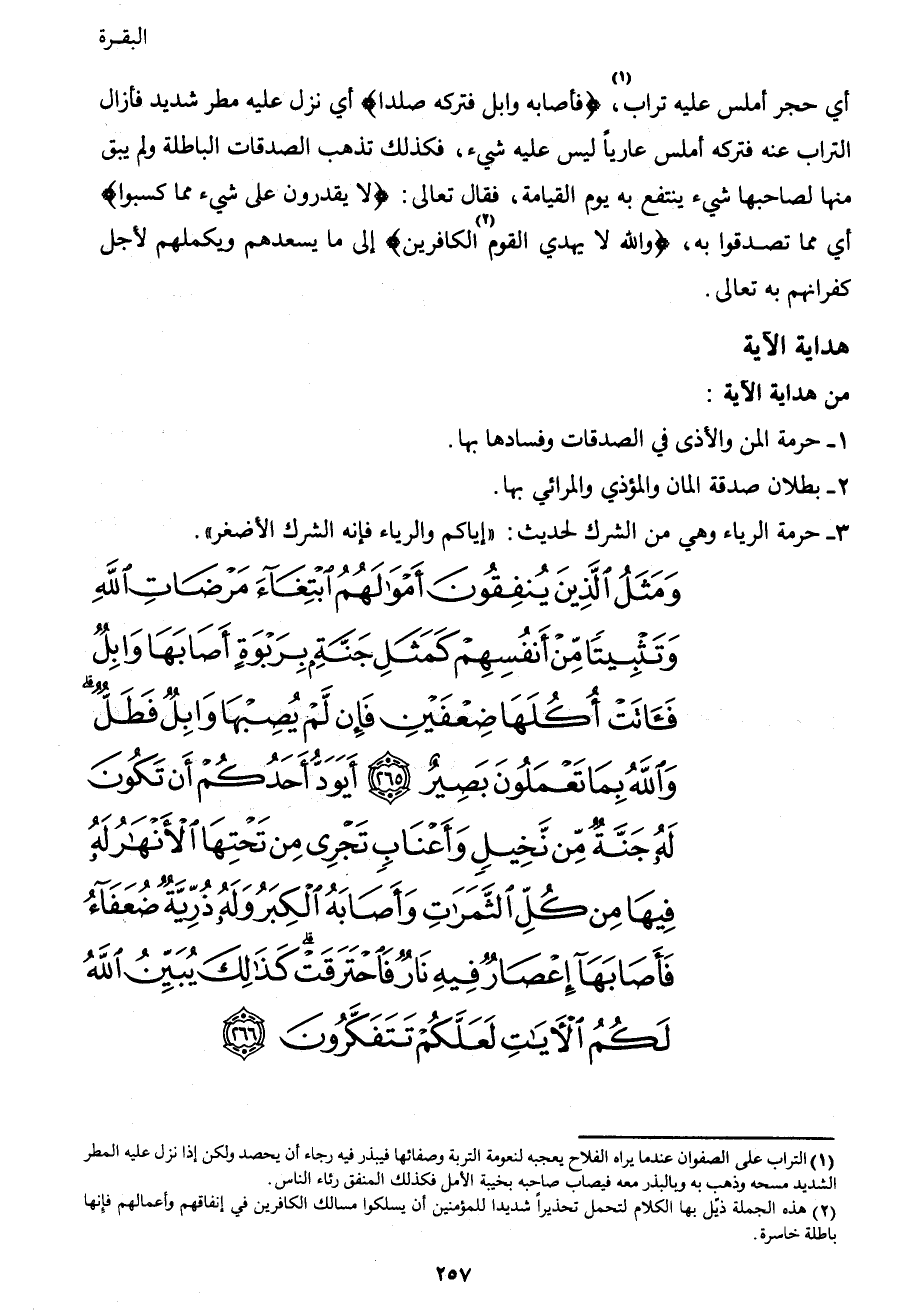 البقـرة
أي حجر أملس عليه تراب(١)، ﴿فأصابه وابل فتركه صلدا﴾ أي نزل عليه مطر شديد فأزال
التراب عنه فتركه أملس عارياً ليس عليه شيء، فكذلك تذهب الصدقات الباطلة ولم يبق
منها لصاحبها شيء ينتفع به يوم القيامة، فقال تعالى: ﴿لا يقدرون على شيء مما كسبوا﴾
أي مما تصـدقوا به، ﴿والله لا يهدي القوم(٢) الكافرين﴾ إلى ما يسعدهم ويكملهم لأجل
كفرانهم به تعالى.
هداية الآية
من هداية الآية :
١ـ حرمة المن والأذى في الصدقات وفسادها بها.
٢ـ بطلان صدقة المان والمؤذي والمرائي بها.
٣ـ حرمة الرياء وهي من الشرك لحديث: «إياكم والرياء فإنه الشرك الأصغر».
وَمَثَلُ ٱلَّذِينَ يُنفِقُونَ أَمْوَٰلَهُمُ ٱبْتِغَآءَ مَرْضَاتِ ٱللَّهِ
وَتَثْبِيتًا مِّنْ أَنفُسِهِمْ كَمَثَلِ جَنَّةٍۭ بِرَبْوَةٍ أَصَابَهَا وَابِلٌ
فَـَٔاتَتْ أُكُلَهَا ضِعْفَيْنِ فَإِن لَّمْ يُصِبْهَا وَابِلٌ فَطَلٌّ ۗ
وَٱللَّهُ بِمَا تَعْمَلُونَ بَصِيرٌ ﴿٢٦٥﴾ أَيَوَدُّ أَحَدُكُمْ أَن تَكُونَ
لَهُۥ جَنَّةٌ مِّن نَّخِيلٍ وَأَعْنَابٍ تَجْرِى مِن تَحْتِهَا ٱلْأَنْهَٰرُ لَهُۥ
فِيهَا مِن كُلِّ ٱلثَّمَرَٰتِ وَأَصَابَهُ ٱلْكِبَرُ وَلَهُۥ ذُرِّيَّةٌ ضُعَفَآءُ
فَأَصَابَهَآ إِعْصَارٌ فِيهِ نَارٌ فَٱحْتَرَقَتْ ۗ كَذَٰلِكَ يُبَيِّنُ ٱللَّهُ
لَكُمُ ٱلْـَٔايَٰتِ لَعَلَّكُمْ تَتَفَكَّرُونَ ﴿٢٦٦﴾
(١) التراب على الصفوان عندما يراه الفلاح يعجبه لنعومة التربة وصفائها فيبذر فيه رجاء أن يحصد ولكن إذا نزل عليه المطر
الشديد مسحه وذهب به وبالبذر معه فيصاب صاحبه بخيبة الأمل فكذلك المنفق رئاء الناس.
(٢) هذه الجملة ذيّل بها الكلام لتحمل تحذيراً شديدا للمؤمنين أن يسلكوا مسالك الكافرين في إنفاقهم وأعمالهم فإنها
باطلة خاسرة.
٢٥٧